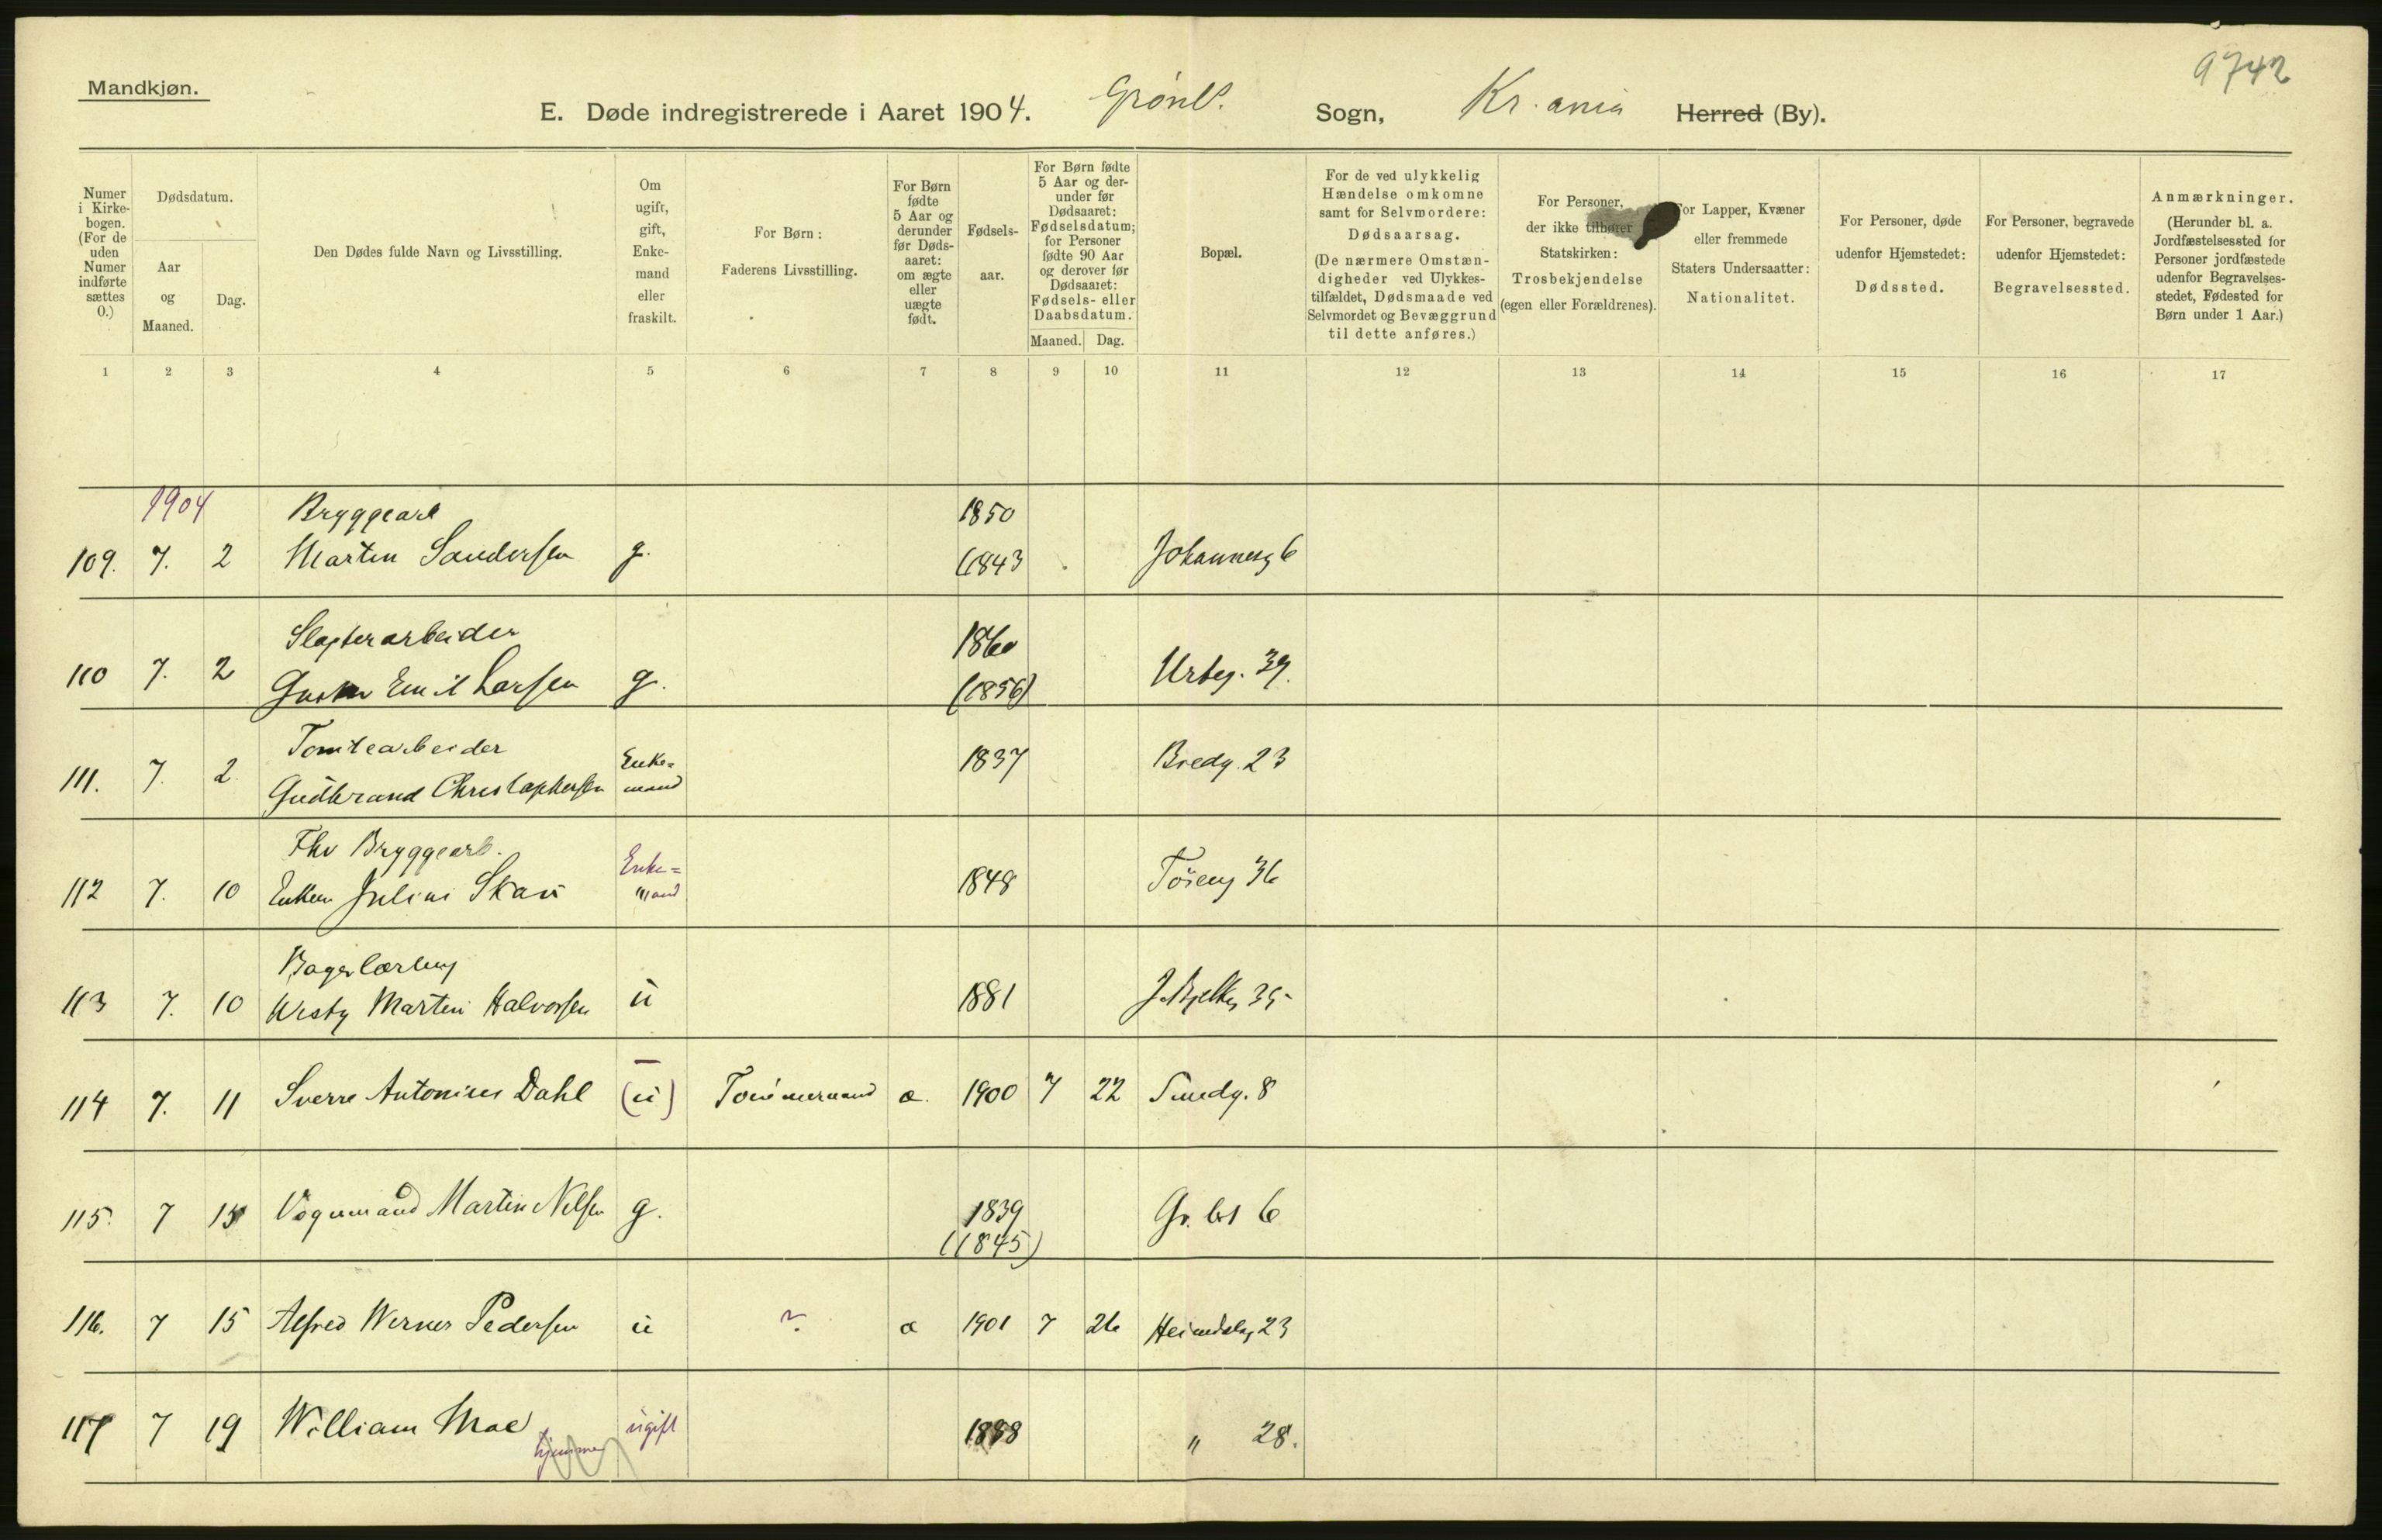 9742
Mandkjøn.
E. Døde indregistrerede i Aaret 1904. Grønl. Sogn, Kr.ania Herred (By).
Numer i Kirkebogen. (For de uden Numer indførte sættes 0.)
Dødsdatum.
Aar og Maaned.
Dag.
Den Dødes fulde Navn og Livsstilling.
Om ugift, gift, Enkemand eller fraskilt.
For Børn: Faderens Livsstilling.
For Børn fødte 5 Aar og derunder før Dødsaaret: om ægte eller uægte født.
Fødselsaar.
For Børn fødte 5 Aar og derunder før Dødsaaret: Fødselsdatum; for Personer fødte 90 Aar og derover før Dødsaaret: Fødsels- eller Daabsdatum.
Maaned. Dag.
Bopæl.
For de ved ulykkelig Hændelse omkomne samt for Selvmordere: Dødsaarsag. (De nærmere Omstændigheder ved Ulykkestilfældet, Dødsmaade ved Selvmordet og Bevæggrund til dette anføres.)
For Personer, der ikke tilhører Statskirken: Trosbekjendelse (egen eller Forældrenes).
For Lapper, Kvæner eller fremmede Staters Undersaatter: Nationalitet.
For Personer, døde udenfor Hjemstedet: Dødssted.
For Personer, begravede udenfor Hjemstedet: Begravelsessted.
Anmærkninger. (Herunder bl. a. Jordfæstelsessted for Personer jordfæstede udenfor Begravelsesstedet, Fødested for Børn under 1 Aar.)
1 2 3 4 5 6 7 8 9 10 11 12 13 14 15 16 17
1904 Bryggearb 1850
109. 7. 2 Martin Sandersen g. (1843 Johannesg 6
Slagterarbeider 1860
110 7. 2 Gustav Emil Larsen g. (1856) Urteg. 39.
Tomtearbeider Enke=
111. 7. 2 Gudbrand Christophersen mand 1837 Bredg. 23
Fhv Bryggearb. Enke=
112 7. 10 Enkem Julius Skau mand 1848 Tøieng 36
Bagerlærling
113 7. 10 Westy Martin Halvorsen ü 1881 J. Bjelkeg 35
114 7. 11 Sverre Antonius Dahl (ü) Tømmermand æ. 1900 7 22 Smedg. 8
115. 7 15 Vognmand Martin Nilsen g. 1839 Gr. 6
(1845)
116. 7 15 Alfred Werner Pedersen ü ? æ 1901 7 26 Heimdalsg 23
117 7 19 William Moe ugift 1888 " 28.
hjemme